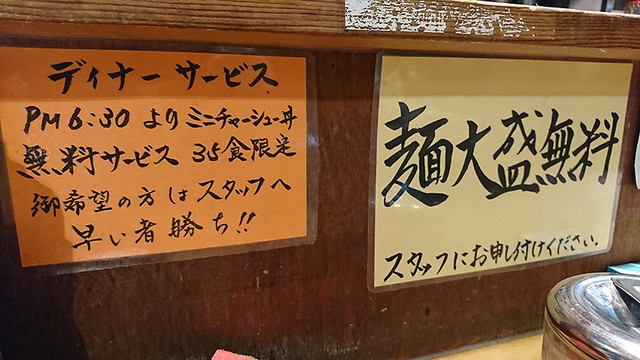 ディナーサービス
PM6:30よりミニチャーシュー丼
無料サービス 35食限定
御希望の方はスタッフへ
早い者勝ち!!
麺大盛無料
スタッフにお申し付けください。